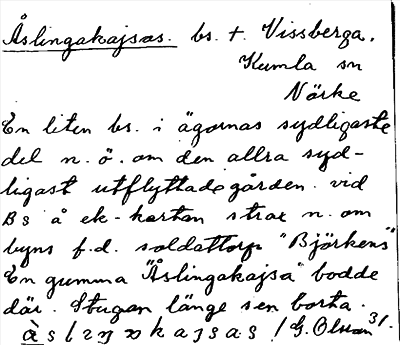 Åslingakajsas. bs. t. Vissberga.
Kumla sn
Närke
En liten bs. i ägornas sydligaste
del n.ö. om den allra syd-
ligast utflyttade gården. vid
Bs å ek-kartan strax n. om
byns f.d. soldattorp "Björkens"
En gumma "Åslingakajsa" bodde
där. Stugan länge sen borta.
G. Olsson 31.